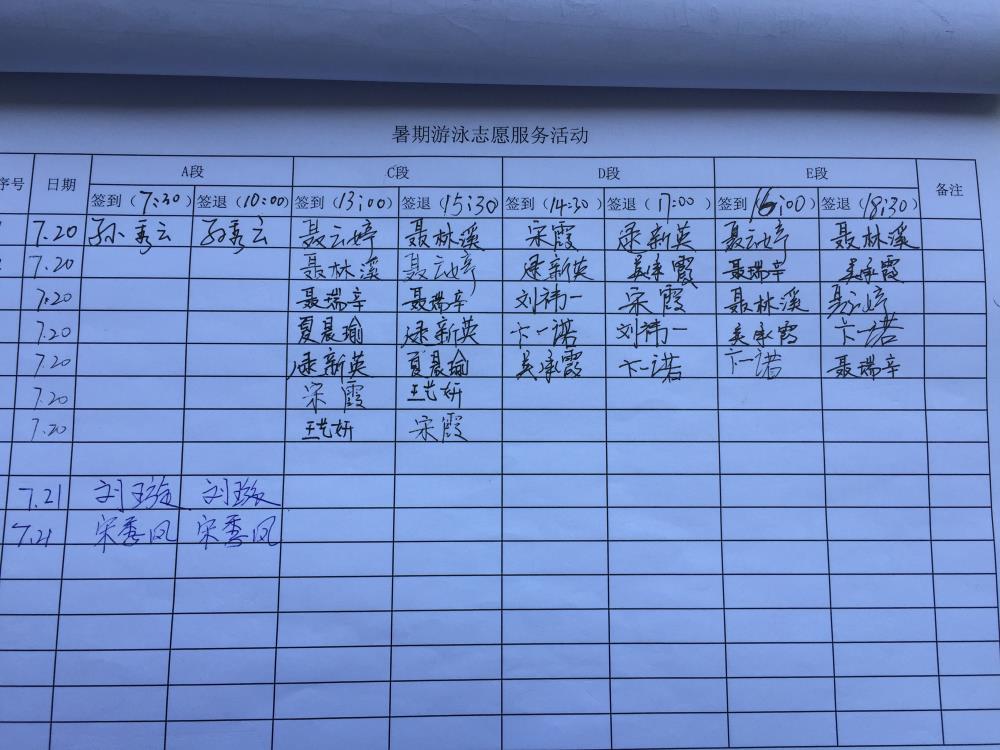 暑期游泳志愿服务活动
序号 日期 A段 C段 D段 E段 备注
签到（7:30） 签退（10:00） 签到（13:00） 签退（15:30） 签到（14:30） 签退（17:00） 签到（16:00） 签退（18:30）
7.20 孙秀云 孙秀云 聂云婷 聂林溪 宋霞 逯新英 聂云婷 聂林溪
7.20 聂林溪 聂云婷 逯新英 吴承霞 聂瑞辛 吴承霞
7.20 聂瑞辛 聂瑞辛 刘祎一 宋霞 聂林溪 聂云婷
7.20 夏晨瑜 逯新英 卞一诺 刘祎一 吴承霞 卞一诺
7.20 逯新英 夏晨瑜 吴承霞 卞一诺 卞一诺 聂瑞辛
7.20 宋霞 王艺妍
7.20 王艺妍 宋霞
7.21 刘玉璇 刘玉璇
7.21 宋季凤 宋季凤